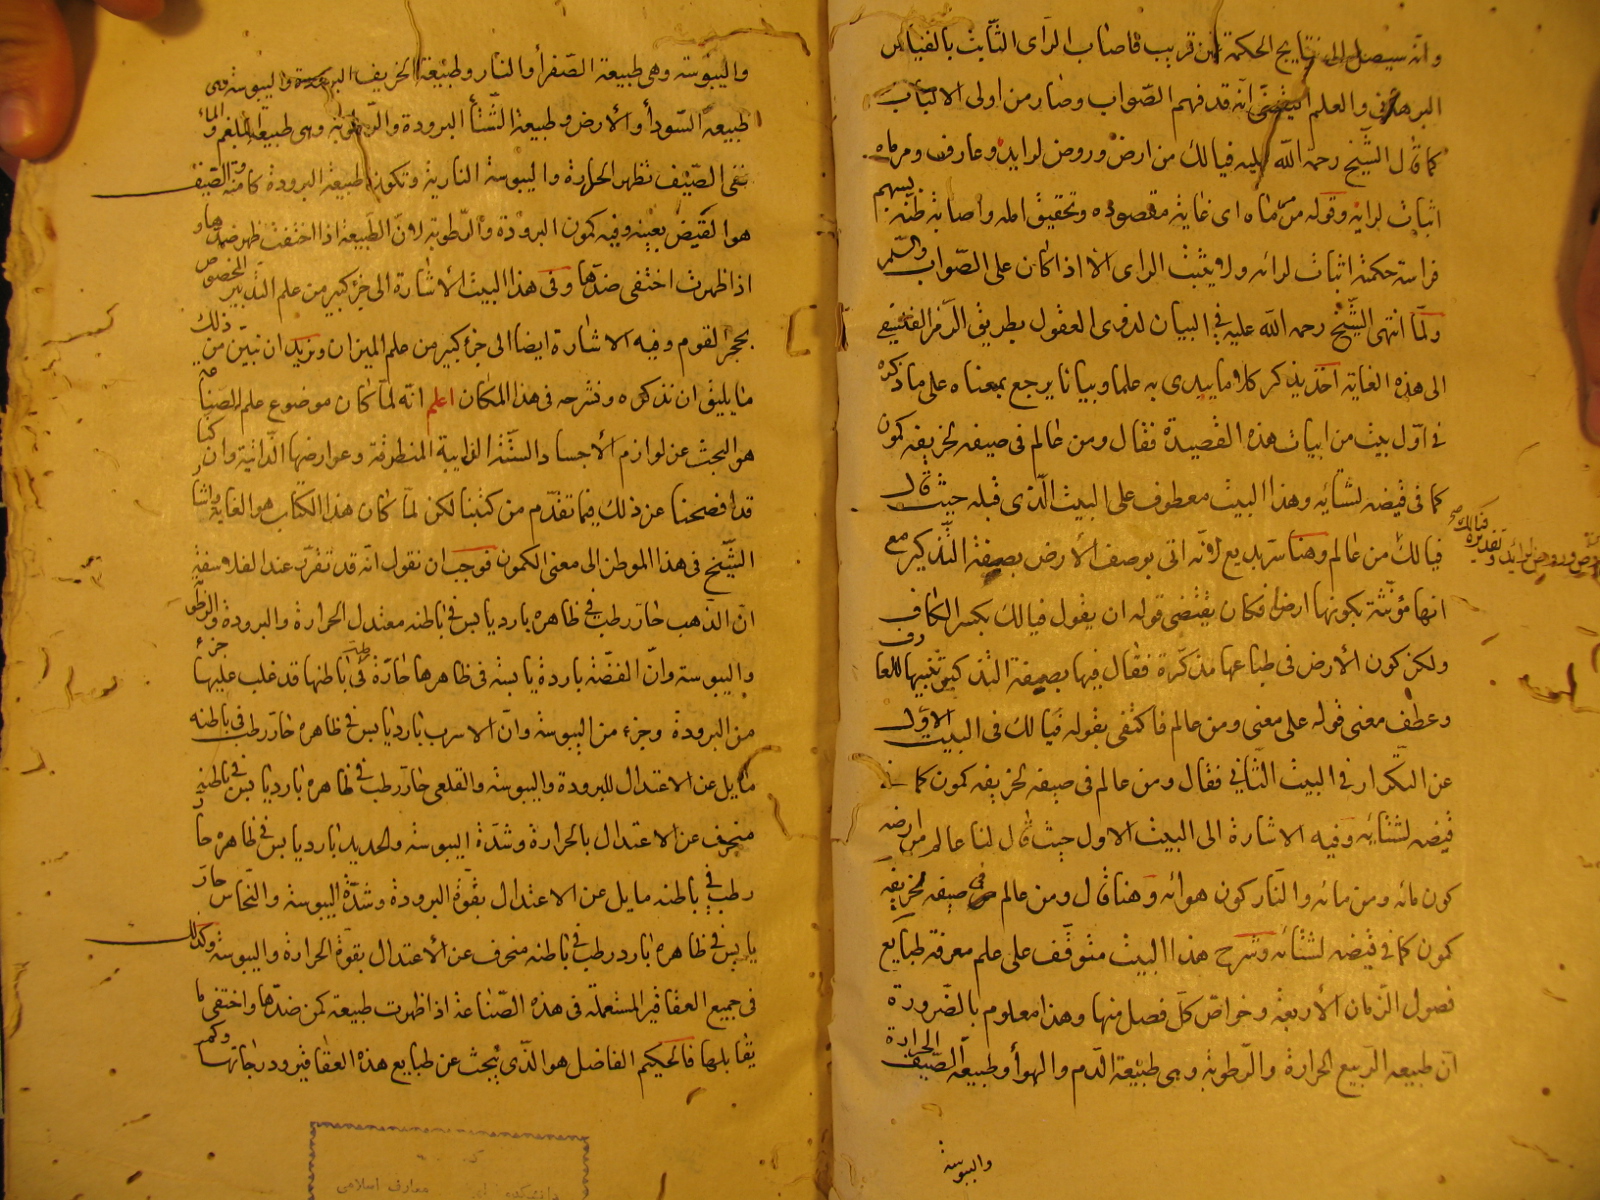 وانه سيصل الى نتايج الحكمة من قريب فاصاب الراى الثابت بالقياس
البرهانى والعلم اليقينى انه قد فهم الصواب وصار من اولى الالباب
كما قال الشيخ رحمه الله عليه فيا لك من ارض وروض لرايد وعارف ومرماه
اثبات لرايه وقوله مرماه اى غاية مقصوده وتحقيق امله واصابة ظنه بسهم
فراسة حكمته اثبات لرائه ولا يثبت الراى الا اذا كان على الصواب والسلم
ولما انتهى الشيخ رحمه الله عليه فى البيان لذوى العقول بطريق الرمز
الى هذه الغاية اخذ يذكر كلاما يبدى به علما وبيانا يرجع بمعناه على ما ذكره
فى اول بيت من ابيات هذه القصيدة فقال ومن عالم فى صيفه لخريفه كمون
كما فى قيضه لشتايه وهذا البيت معطوف على البيت الذى قبله حيث قال
فيا لك من عالم وهنا سر بديع لانه اتى بوصف الارض بصيغة التذكير مع
انها مؤنثة بكونها ارضا فكان يقتضى قوله ان يقول فيا لك بكسر الكاف
ولكن كون الارض فى طباعها مذكرة فقال فيها بصيغة التذكير تنبيها للعارف
وعطف معنى قوله على معنى ومن عالم فاكتفى بقوله فيا لك فى البيت الاول
عن التكرار فى البيت الثانى فقال ومن عالم فى صيفه لخريفه كمون كما فى
قيضه لشتايه وفيه الاشارة الى البيت الاول حيث قال لنا عالم من ارضه
كون مائه ومن مائه والنار كون هوائه وهنا قال ومن عالم فى صيفه لخريفه
كمون كما فى قيضه لشتائه وشرح هذا البيت متوقف على علم معرفة طبايع
فصول الزمان الاربعة وخواص كل فصل منها وهذا معلوم بالضرورة
ان طبيعة الربيع الحرارة والرطوبة وهى طبيعة الدم والهوأ وطبيعة الصيف الحرارة
واليبوسة
واليبوسة وهى طبيعة الصفرأ والنار وطبيعة الخريف البرودة واليبوسة وهى
طبيعة السودأ والارض وطبيعة الشتأ البرودة والرطوبة وهى طبيعة البلغم والمأ
ففى الصيف تظهر الحرارة واليبوسة النارية وتكون طبيعة البرودة كامنة والصيف
هو القيض بعينه وفيه كمون البرودة والرطوبة لان الطبيعة اذا اختفت ظهر ضدها و
اذا ظهرت اختفى ضدها وفى هذا البيت الاشارة الى جزء كبير من علم التدبير المخصوص
بحجر القوم وفيه الاشارة ايضا الى جزء كبير من علم الميزان ونريد ان نبين من ذلك
ما يليق ان نذكره ونشرحه فى هذا المكان اعلم انه لما كان موضوع علم الصناعة
هو البحث عن لوازم الاجساد الستة الذايبة المنطرقة وعوارضها الذاتية وان كنا
قد افصحنا عن ذلك فيما تقدم من كتبنا لكن لما كان هذا الكتاب هو الغاية واشار
الشيخ فى هذا الموطن الى معنى الكمون فوجب ان نقول انه قد تقرر عند الفلاسفة
ان الذهب حار رطب فى ظاهره بارد يابس فى باطنه معتدل الحرارة والبرودة والرطوبة
واليبوسة وان الفضة باردة يابسة فى ظاهرها حارة رطبة فى باطنها قد غلب عليها جزء
من البرودة وجزء من اليبوسة وان الاسرب بارد يابس فى ظاهره حار رطب فى باطنه
مايل عن الاعتدال للبرودة واليبوسة والقلعى حار رطب فى ظاهره بارد يابس فى باطنه
منحرف عن الاعتدال بالحرارة وشدة اليبوسة والحديد بارد يابس فى ظاهره حار
رطب فى باطنه مايل عن الاعتدال بقوة البرودة وشدة اليبوسة والنحاس حار
يابس فى ظاهره بارد رطب فى باطنه منحرف عن الاعتدال بقوة الحرارة واليبوسة وكذلك
فى جميع العقاقير المستعملة فى هذه الصناعة اذا ظهرت طبيعة كمن ضدها واختفى ما
يقابلها فالحكيم الفاضل هو الذى يبحث عن طبايع هذه العقاقير ودرجاتها وكم
معارف اسلامى